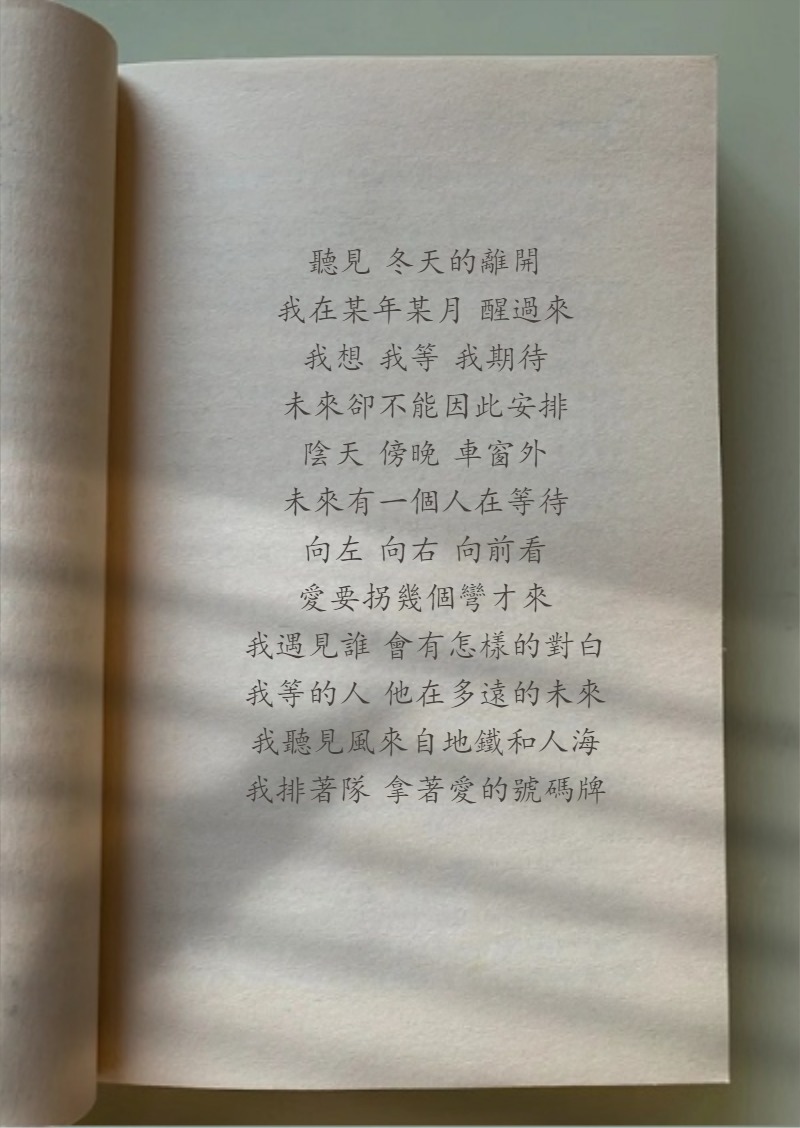 聽見 冬天的離開
我在某年某月 醒過來
我想 我等 我期待
未來卻不能因此安排
陰天 傍晚 車窗外
未來有一個人在等待
向左 向右 向前看
愛要拐幾個彎才來
我遇見誰 會有怎樣的對白
我等的人 他在多遠的未來
我聽見風來自地鐵和人海
我排著隊 拿著愛的號碼牌